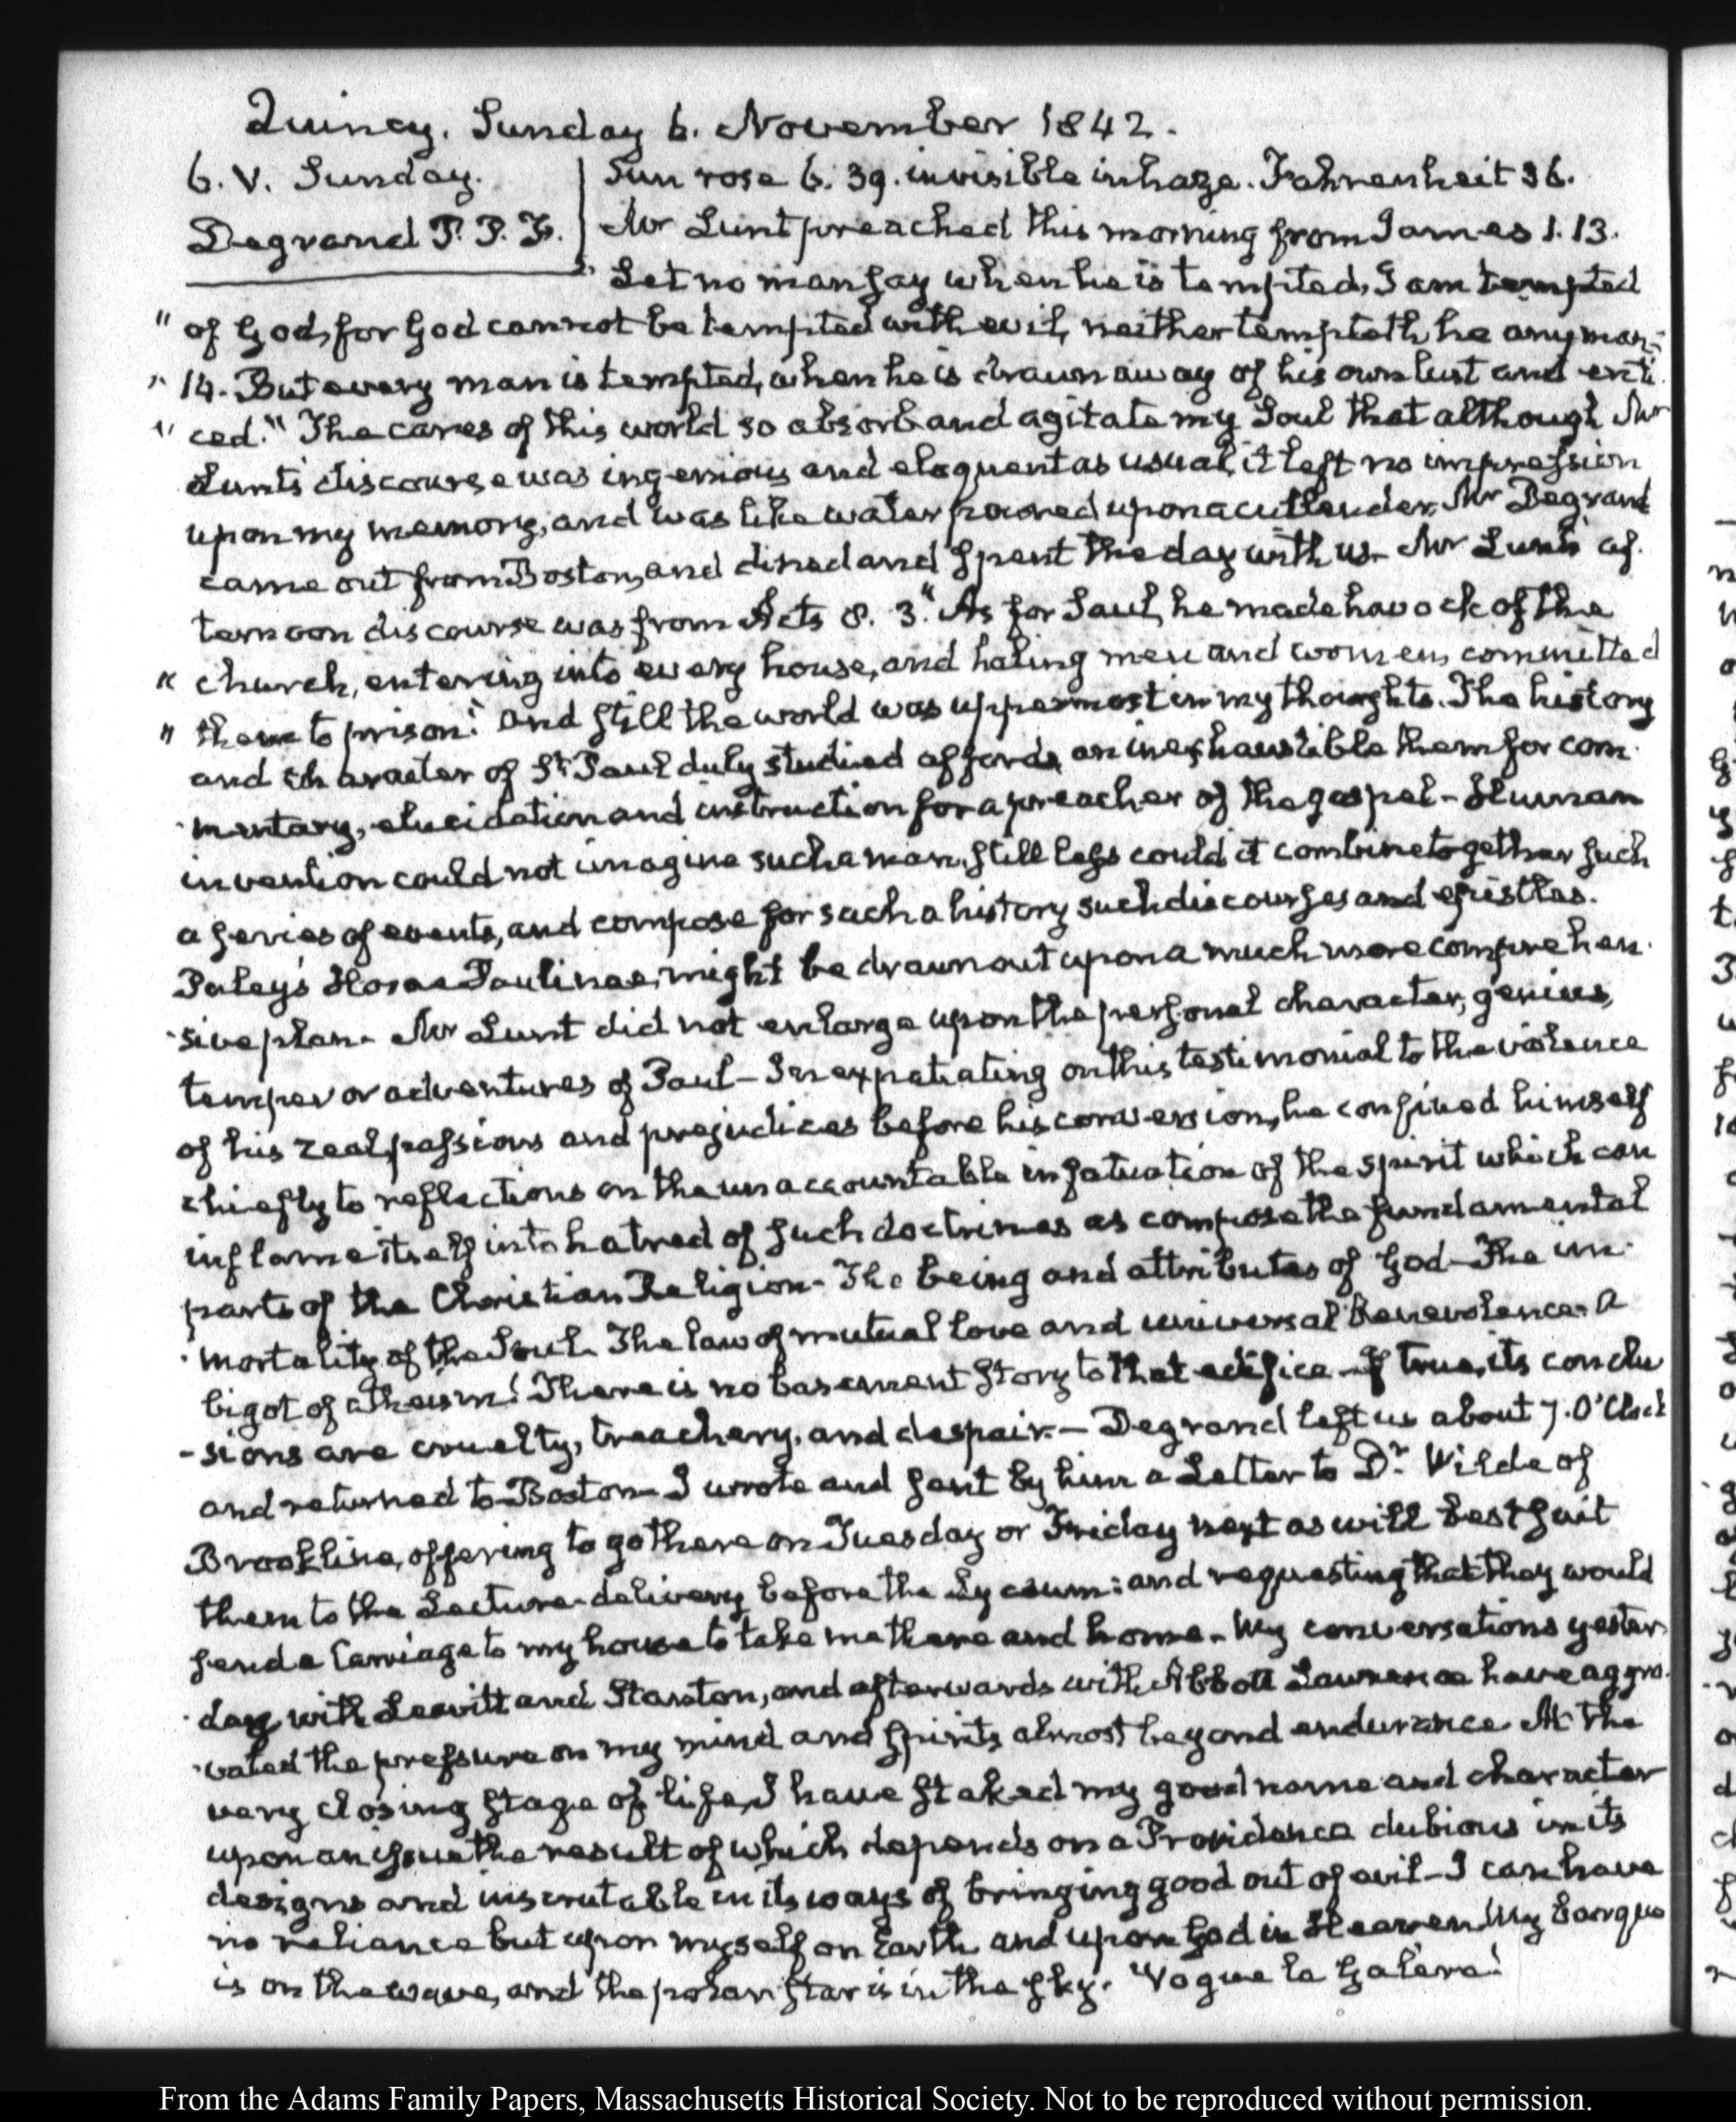 Quincy. Sunday 6. November 1842.
6. V. Sunday.
Degrand P. P. F.
Sun rose 6. 39. invisible in haze. Fahrenheit 36.
Mr Lunt preached this morning from James 1. 13.
" Let no man say when he is tempted, I am tempted
" of God, for God cannot be tempted with evil, neither tempteth he any man:
" 14. But every man is tempted, when he is drawn away of his own lust and enti
" ced." The cares of this world so absorb and agitate my Soul that although Mr
Lunt's discourse was ingenious and eloquent as usual, it left no impression
upon my memory, and was like water poured upon a cullender. Mr Degrand
came out from Boston, and dined and spent the day with us. Mr Lunt's af
ternoon discourse was from Acts 8. 3. "As for Saul, he made havock of the
" church, entering into every house, and haling men and women, committed
" them to prison." And still the world was uppermost in my thoughts. The history
and character of St Paul duly studied affords, an inexhaustible them for com
mentary, elucidation and instruction for a preacher of the gospel - Human
invention could not imagine such a man, still less could it combine together such
a series of events, and compose for such a history such discourses and epistles.
Paley's Horae Paulinae, might be drawn out upon a much more comprehen
sive plan - Mr Lunt did not enlarge upon the personal character, genius,
temper or adventures of Paul - In expatiating on this testimonial to the violence
of his zeal, passions and prejudices before his conversion, he confined himself
chiefly to reflections on the unaccountable infatuation of the spirit which can
inflame itself into hatred of such doctrines as compose the fundamental
parts of the Christian Religion - The being and attributes of God - The im
mortality of the Soul. The law of mutual love and universal Benevolence. A
bigot of atheism! There is no basement story to that edifice - If true, its conclu
-sions are cruelty, treachery, and despair. - Degrand left us about 7. O'Clock
and returned to Boston - I wrote and sent by him a Letter to Dr Wilde of
Brookline, offering to go there on Tuesday or Friday next as will best suit
them to the Lecture-delivery before the Lyceum: and requesting that they would
send a Carriage to my house to take me there and home - My conversations yester
day with Leavitt and Stanton, and afterwards with Abbott Lawrence have aggra
vated the pressure on my mind and spirits, almost beyond endurance. At the
very closing stage of life, I have staked my good name and character
upon an issue the result of which depends on a Providence dubious in its
designs and inscrutable in its ways of bringing good out of evil - I can have
no reliance but upon myself on Earth and upon God in Heaven. My barque
is on the wave, and the polar star is in the sky. Vogue la Galère!
From the Adams Family Papers, Massachusetts Historical Society. Not to be reproduced without permission.